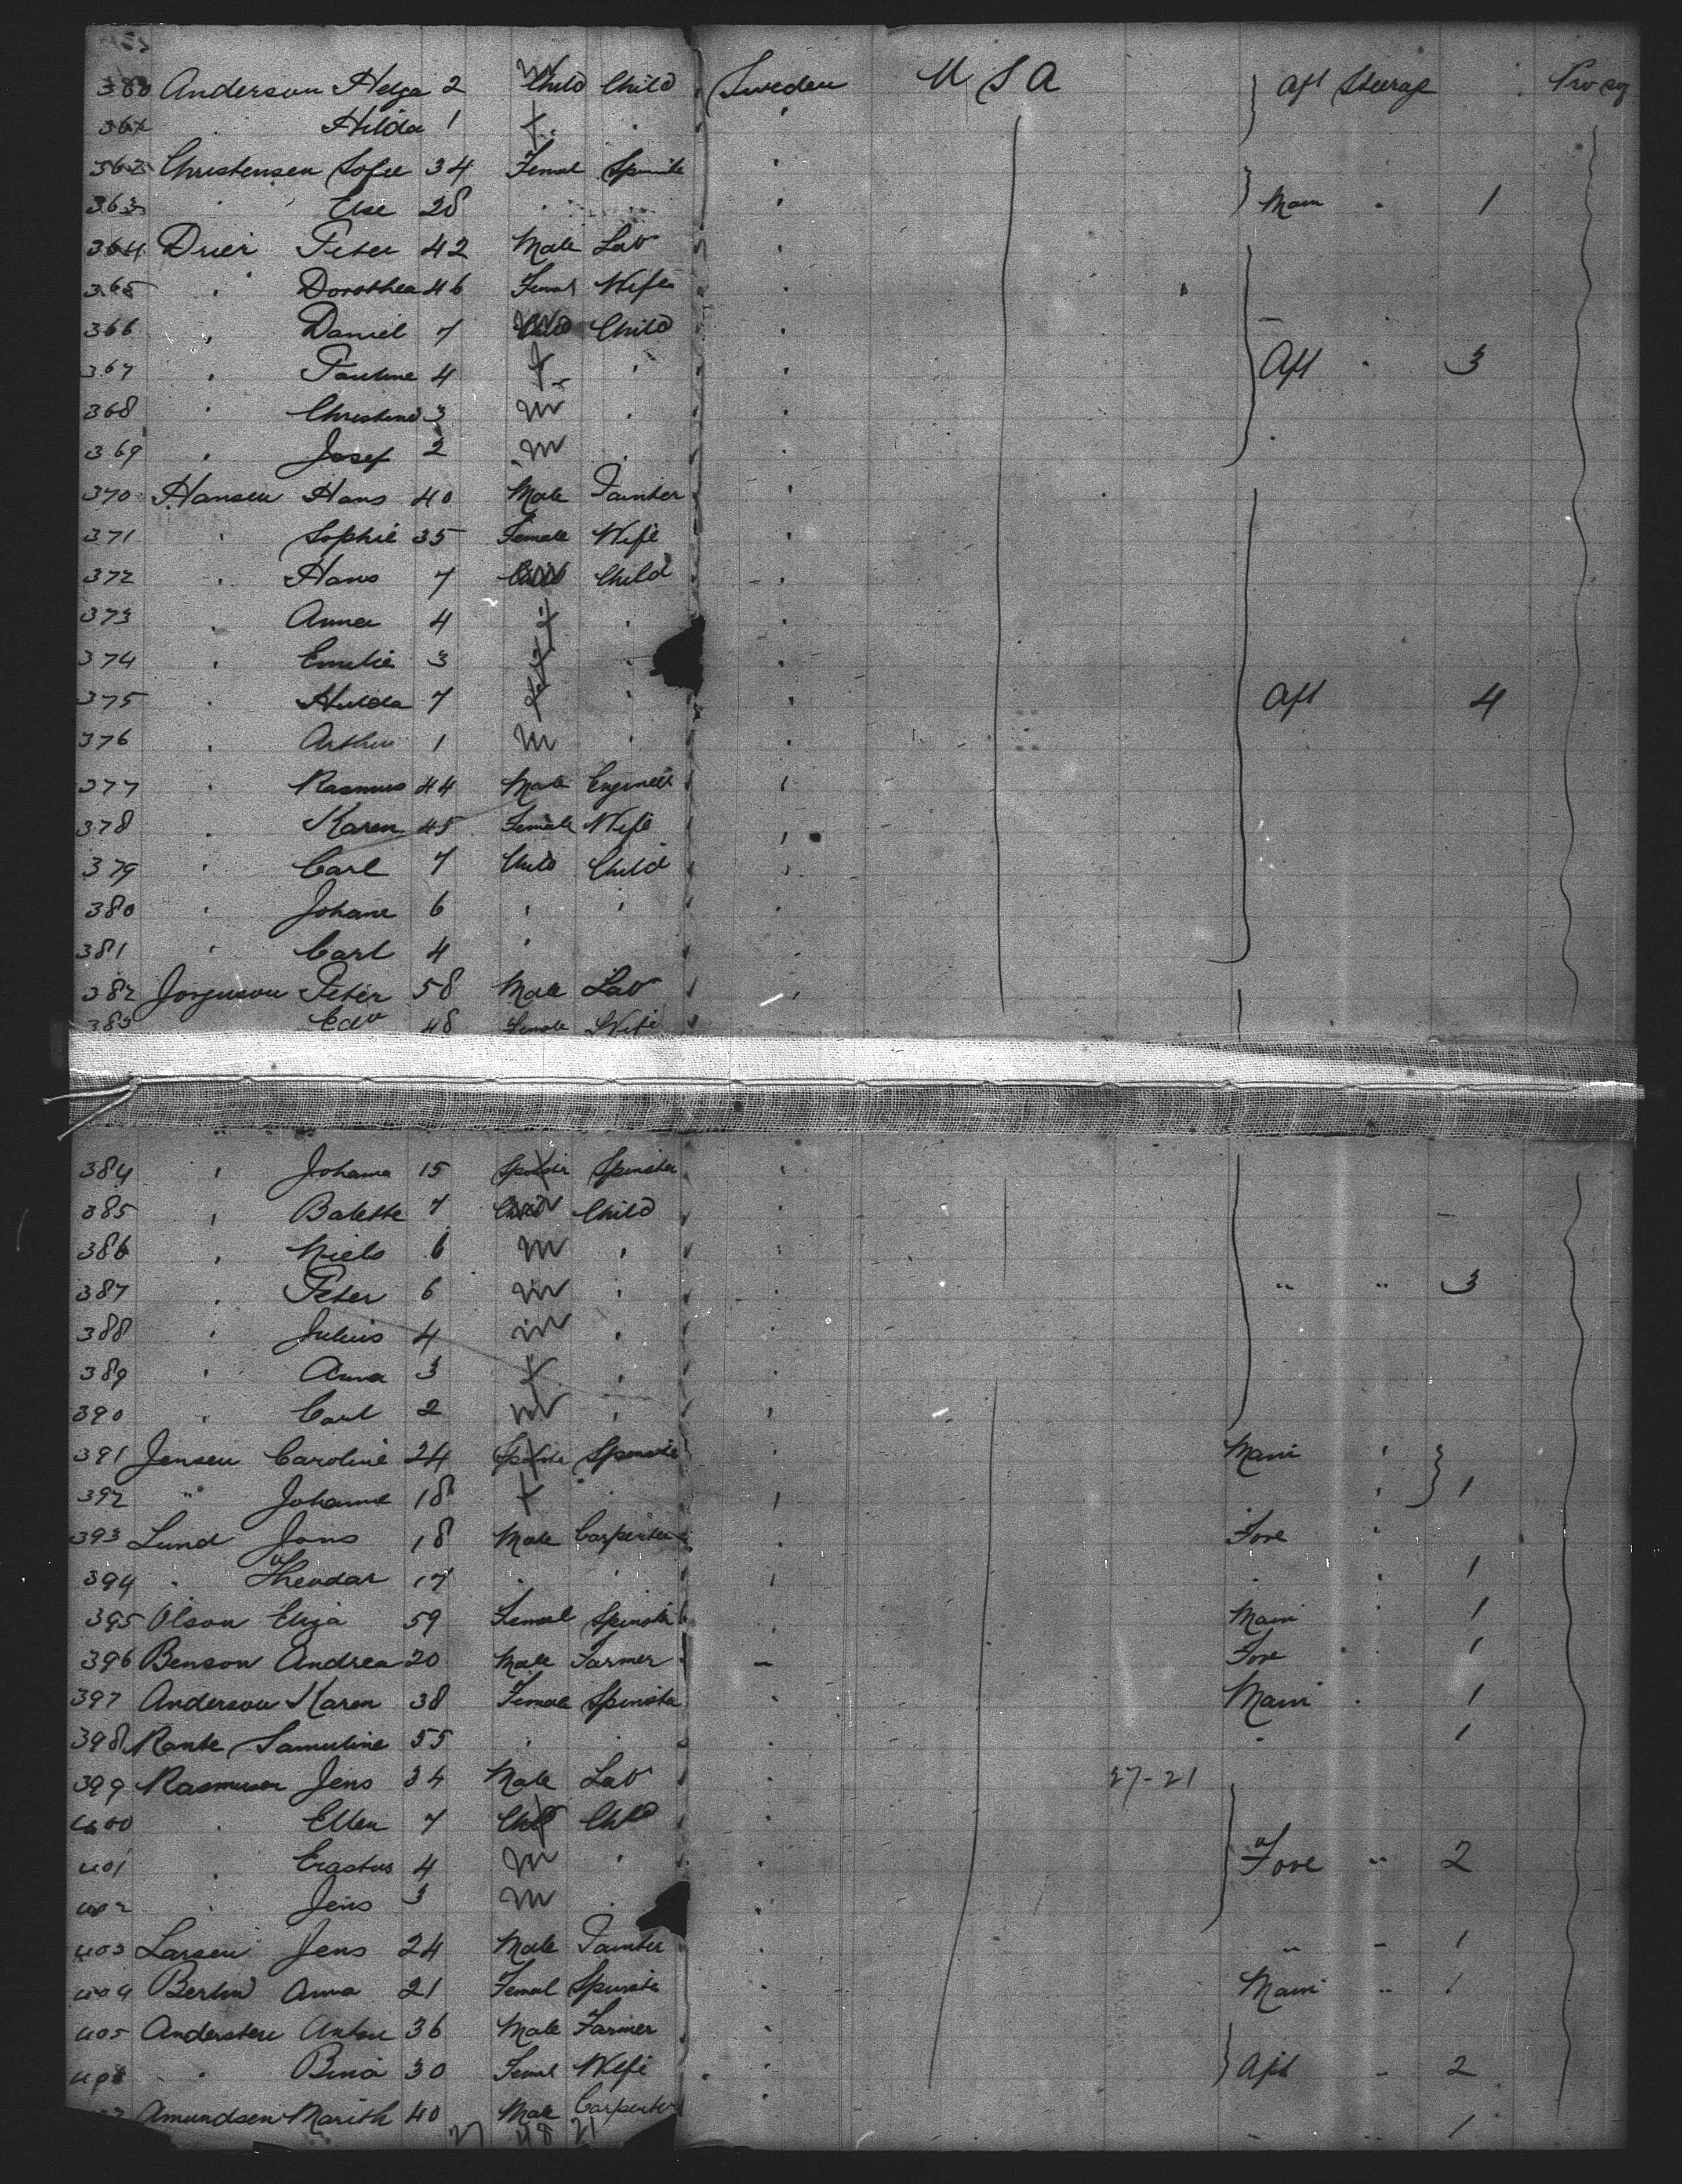 360 Anderson Helga 2 Child Child Sweden U S A Aft Steerage
361 " Hilda 1 f "
362 Christensen Sofie 34 Female Spinster "
363 " Else 28 " " Main " 1
364 Drier Peter 42 Male Lab "
365 " Dorothea 46 Femal Wife "
366 " Daniel 7 Child Child "
367 " Pauline 4 f " " Aft " 3
368 " Christine 3 m " "
369 " Josef 2 m " "
370 Hansen Hans 40 Male Painter "
371 " Sophie 35 Female Wife "
372 " Hans 7 Child Child "
373 " Anna 4 f " "
374 " Emilie 3 f " "
375 " Hulda 7 f " " Aft 4
376 " Arthur 1 m " "
377 " Rasmus 44 Male Engineer "
378 " Karen 45 Female Wife "
379 " Carl 7 Child Child "
380 " Johane 6 " " "
381 " Carl 4 "
382 Jorguson Peter 58 Male Lab "
383 Edv 48 Female Wife
384 " Johanna 15 Spinster "
385 " Balette 7 Child Child "
386 " Niels 6 m " "
387 " Peter 6 m " " " " 3
388 " Julius 4 m " "
389 " Anna 3 f " "
390 " Carl 2 m " "
391 Jensen Caroline 24 Spinster " Main "
392 " Johanne 18 f " " " 1
393 Lund Jons 18 Male Carpenter " Fore "
394 " Theodar 17 " " " " " 1
395 Olson Eliza 59 Femal Spinster " Main " 1
396 Benson Andrea 20 Male Farmer - Fore " 1
397 Anderson Karen 38 Female Spinster " Main " 1
398 Ranke Samuline 55 " " " " 1
399 Rasmuson Jens 34 Male Lab " 27-21
400 " Ellen 7 Child Child "
401 " Erastus 4 m " " Fore " 2
402 " Jens 3 m " "
403 Larsen Jens 24 Male Painter " " 1
404 Berlin Anna 21 Femal Spinster " Main " 1
405 Andersten Anton 36 Male Farmer "
" Bina 30 Femal Wife " Aft " 2
Amundsen Marith 40 Male Carpenter " " 1
27 48 21